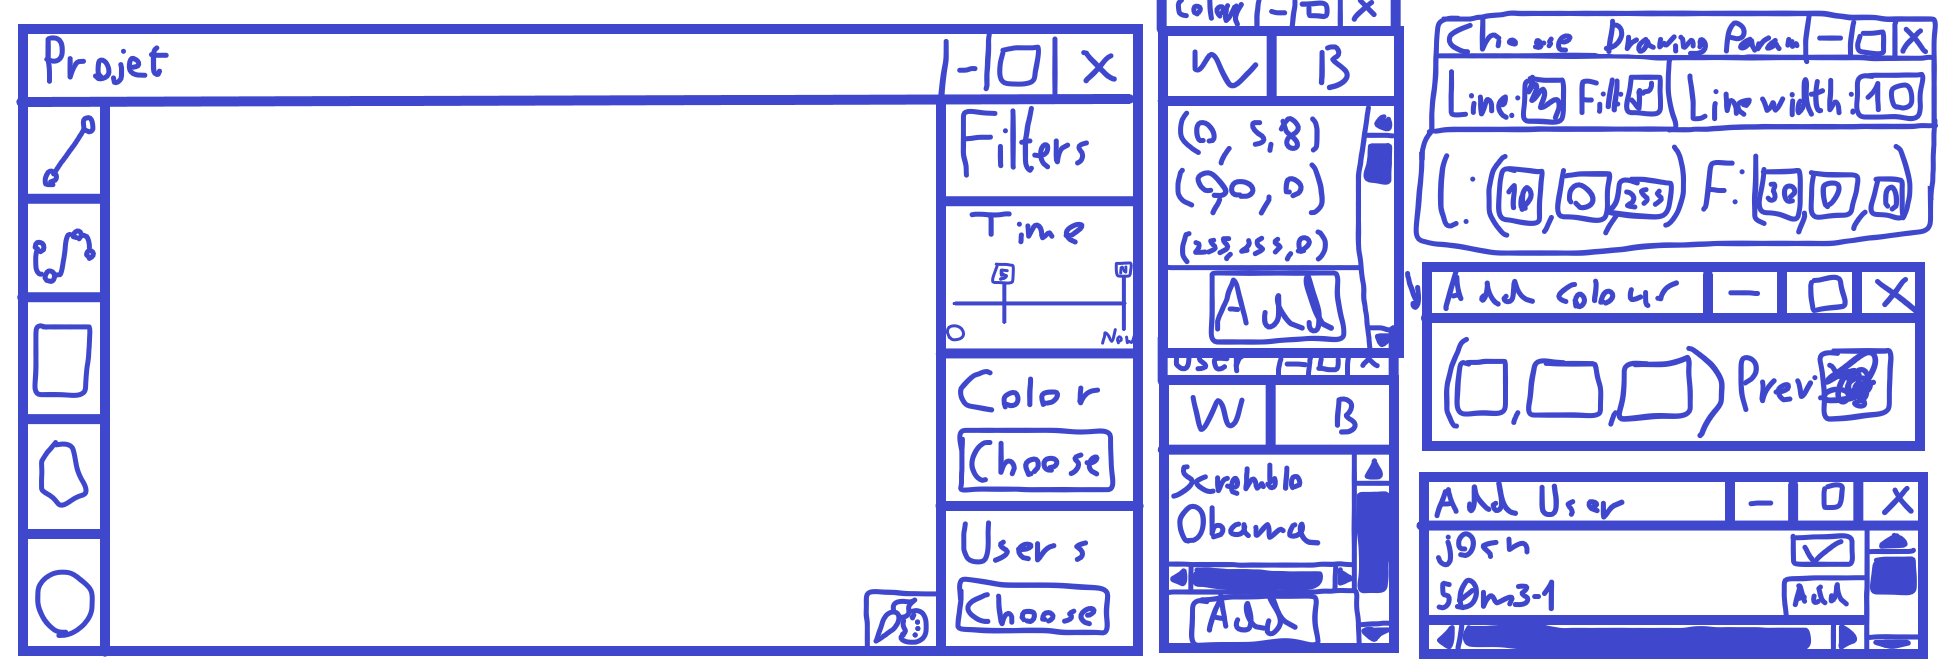 Projet
- X
Filters
Time
5 N
0 Now
Color
Choose
Users
Choose
Color - X
W B
(0, 5,8)
(0,0,0)
(255,255,0)
Add
User - X
W B
Obama
Add
Choose Drawing Param - X
Line: Fill: Line width: 10
L: (10, 0, 255) F: (30, 0, 0)
Add colour - X
( , , ) Previ
Add User - X
Add